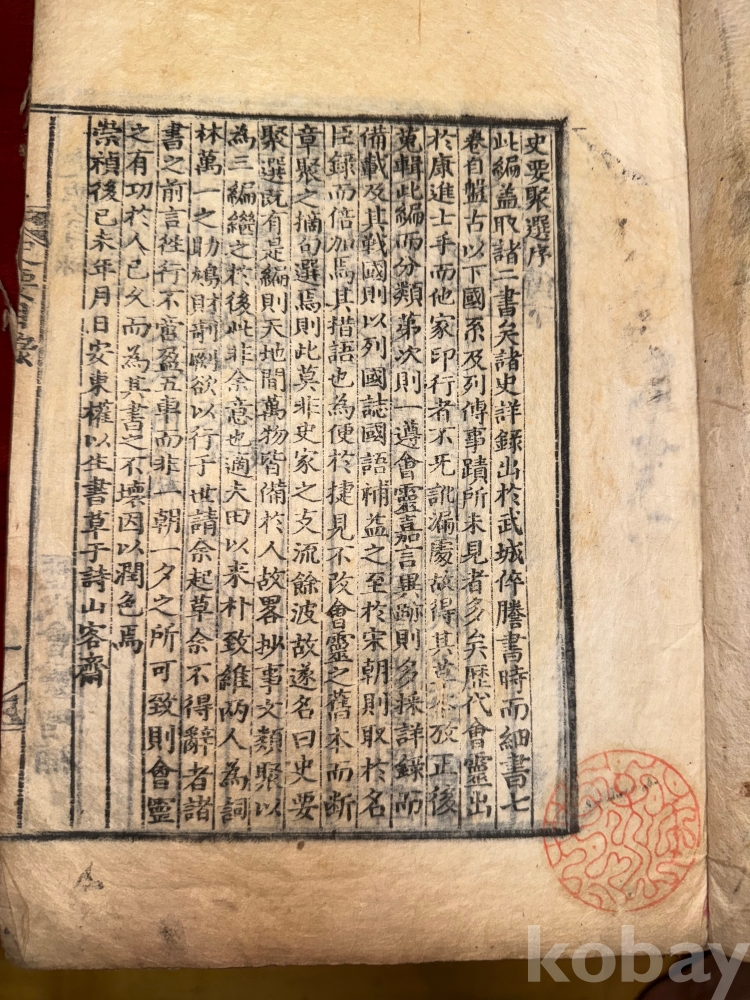 史要聚選序
此編盖取諸二書矣諸史詳錄出於武城倅謄書時而細書七
卷自盤古以下國系及列傳事蹟所未見者多矣歷代會靈出
於康進士手而他家印行者不旡訛漏處故得其攷正後
蒐輯此編而分類苐次則一遵會靈嘉言異跡則多採詳錄而
備載及其戰國則以列國誌國語補益之至於宋朝則取於名
臣錄而倍加焉其措語也為便於捷見不改會靈之舊本而斷
章聚之摘句選焉則此莫非史家之支流餘波故遂名曰史要
聚選旣有是編則天地間萬物皆備於人故畧抄事文類聚以
為三編繼之於後此非余意也適大田以来朴致維兩人為詞
林萬一之助鳩財剞劂欲以行于世請余起草余不得辭者諸
書之前言徃行不啻盈五車而非一朝一夕之所可致則會靈
之有功於人已久而為其書之不壞因以潤色焉
崇禎後己未年月日安東權以生書草于詩山客齋
kobay